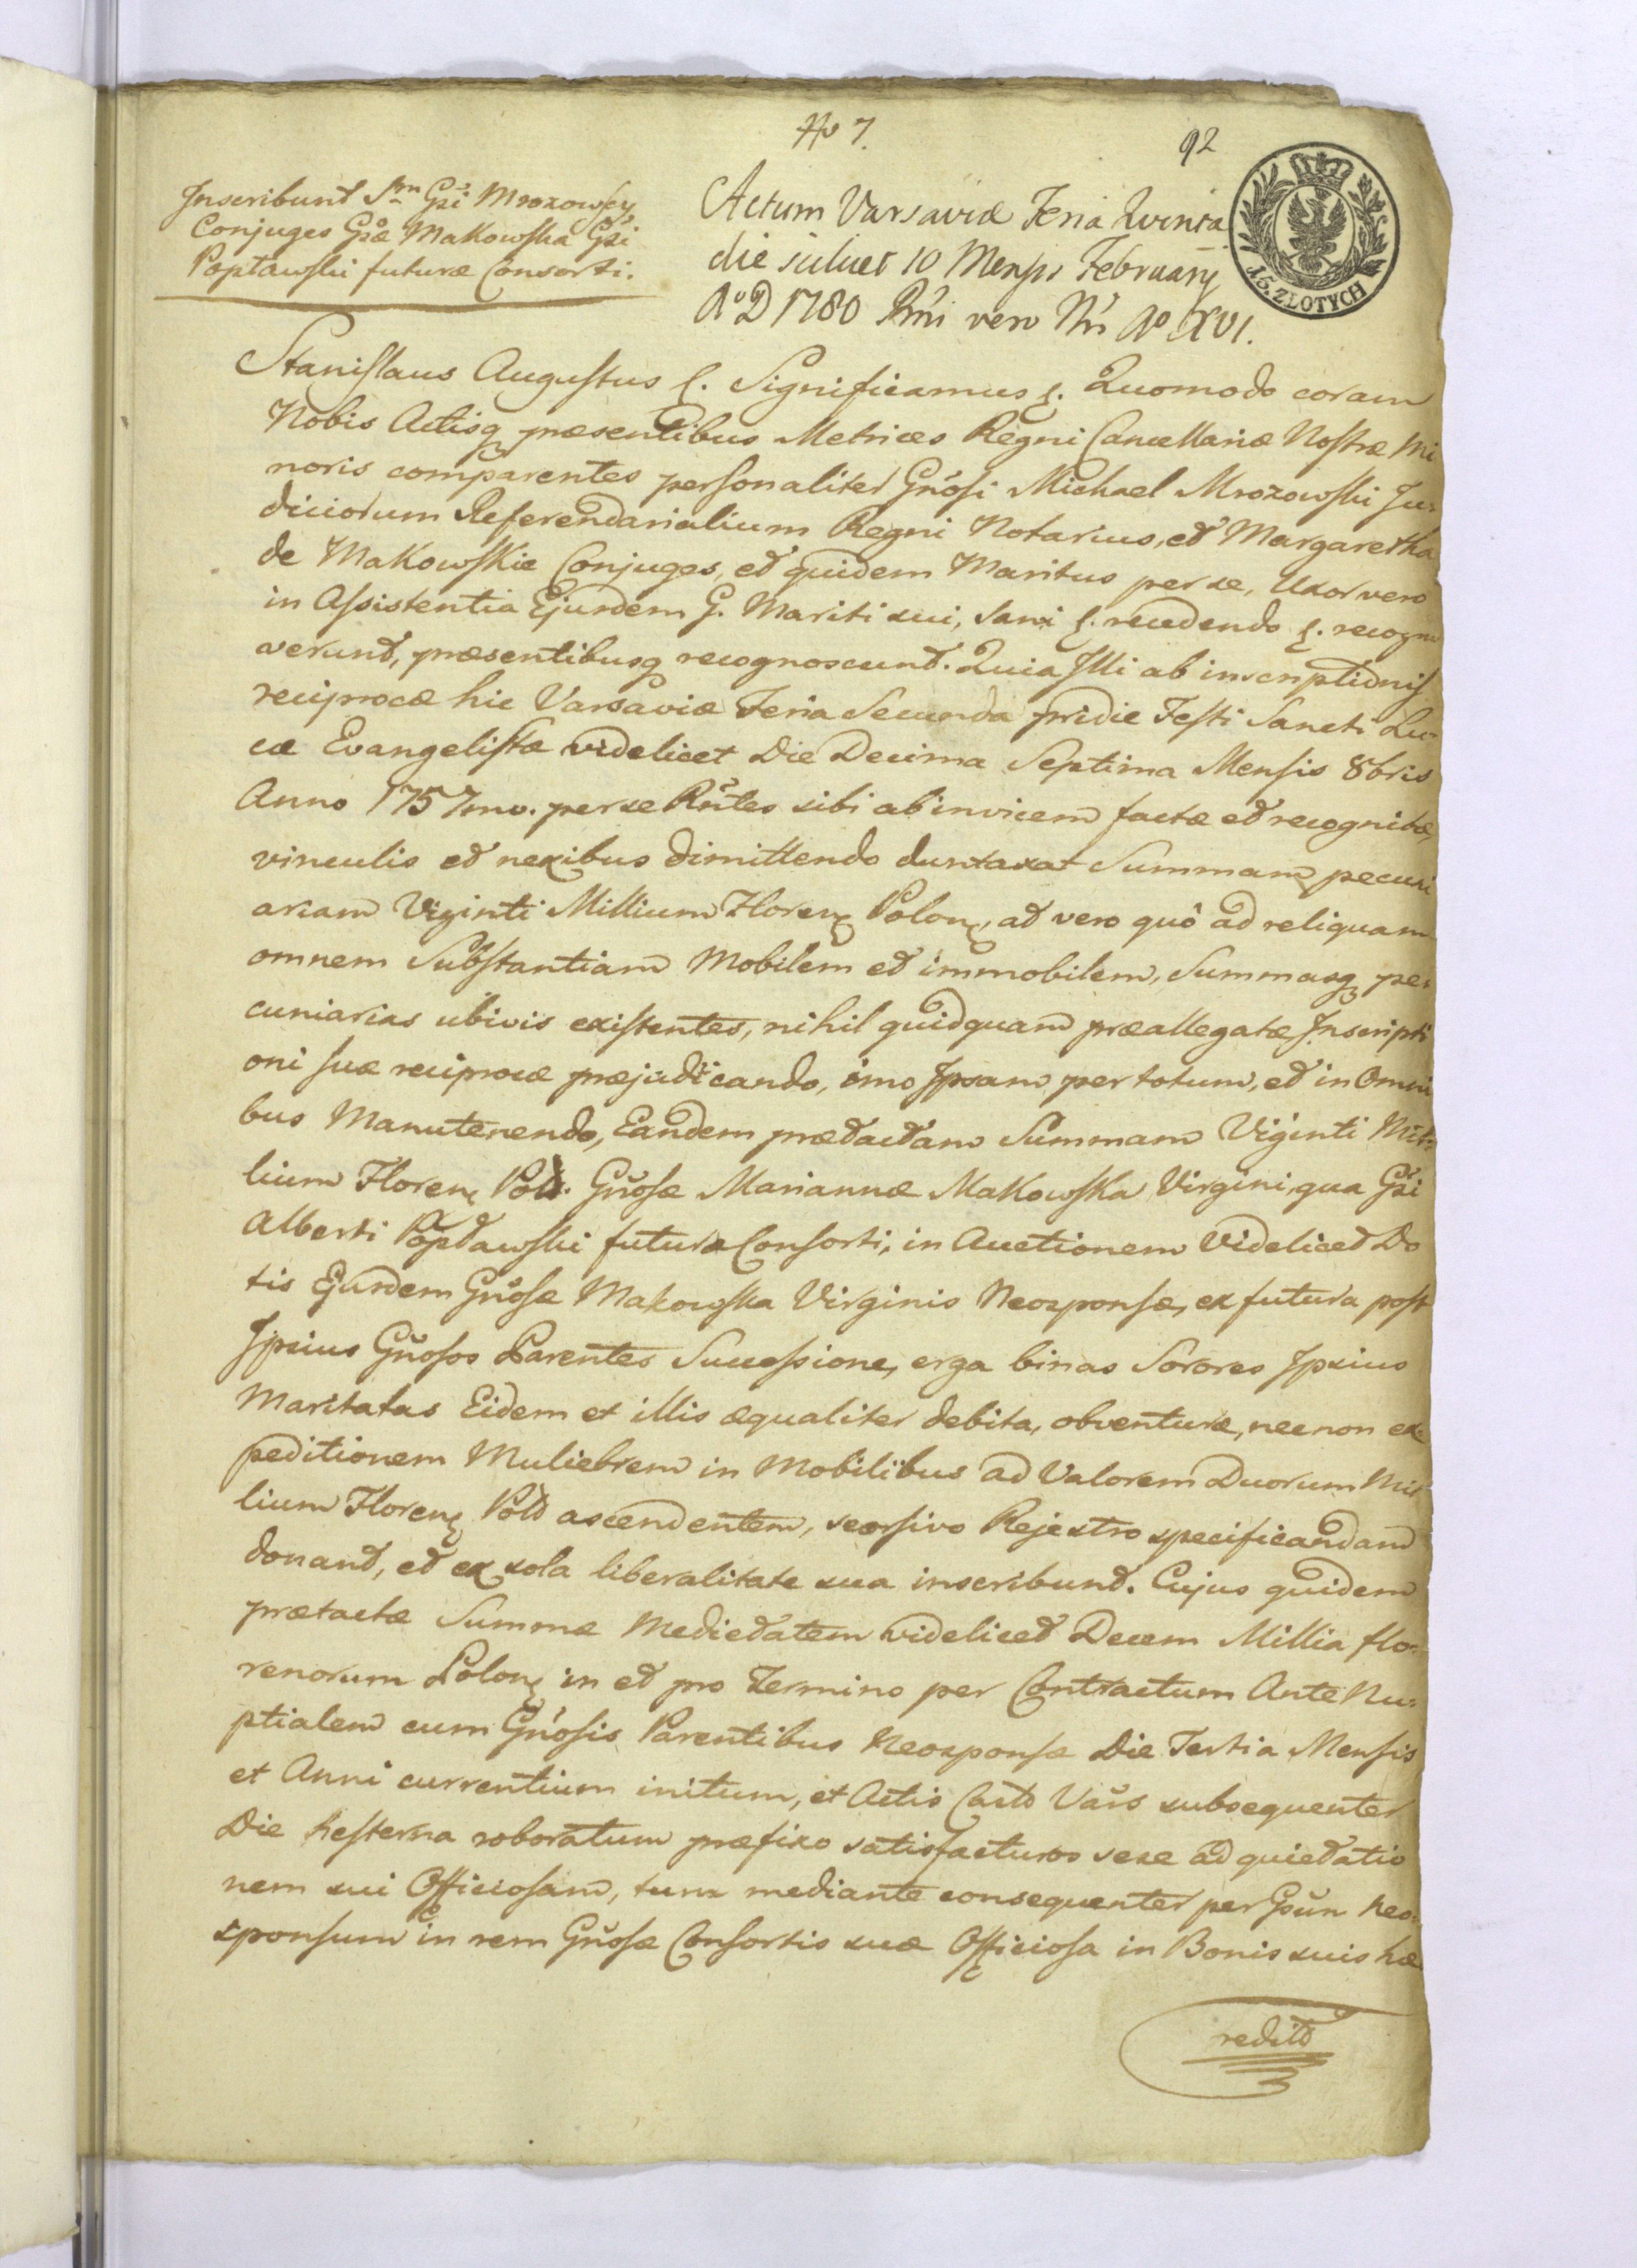 No 7.
92
15. ZŁOTYCH
Inscribunt Sm̅ Gsi Mrozowscy
Conjuges Gsæ Makowska Gsi
Popławski futuræ Consorti.
Actum Varsaviæ Feria Quinta
die scilicet 10 Mensis February
Aº D 1780 Rńi vero Nń Aº XVI.
Stanislaus Augustus &. Significamus &. Quomodo coram
Nobis Actisq præsentibus Metrices Regni Cancellariæ Nostræ Mi
noris comparentes personaliter Gńosi Michael Mrozowski Ju-
diciorum Referendarialium Regni Notarius, et Margaretha
de Makowskie Conjuges, et quidem Maritus per se, Uxor vero
in Assistentia Ejusdem G. Mariti sui, Sani &. recedendo &. recogno
verunt, præsentibusq recognoscunt. Quia Illi ab inscriptionis
reciprocæ hic Varsaviæ Feria Secunda pridie Festi Sancti Lu-
cæ Evangelistæ videlicet Die Decima Septima Mensis 8bris
Anno 1757mo. per se Rńtes sibi ab invicem factæ et recognitæ,
vinculis et nexibus dimittendo duntaxat Summam pecuni
ariam Viginti Millium Floren Polon, at vero quô ad reliquam
omnem Substantiam Mobilem et immobilem, Summasq pe-
cuniarias ubivis existentes, nihil quidquam præallegatæ Inscripti
oni suæ reciprocæ præjudicando, imo Ipsam per totum, et in Omni
bus Manutenendo, Eandem prætactam Summam Viginti Mil-
lium Floren Pold. Gńosæ Mariannæ Makowska Virgini, qua Gsi
Alberti Popławski futuræ Consorti, in Auctionem Videlicet Do
tis Ejusdem Gńosæ Makowska Virginis Neosponsæ, ex futura post
Ipsius Gńosos Parentes Successione, erga binas Sorores Ipsius
Maritatas Eidem et illis æqualiter debita, obventuræ, necnon ex-
peditionem Muliebrem in Mobilibus ad Valorem Duorum Mil
lium Floren Pold ascendentem, seorsivo Rejestro specificandam
donant, et ex sola liberalitate sua inscribunt. Cujus quidem
prætactæ Summæ Medietatem videlicet Decem Millia flo-
renorum Polon in et pro Termino per Contractum Ante Nu-
ptialem cum Gńosis Parentibus Neosponsæ Die Tertia Mensis
et Anni currentium initum, et Actis Castr Vars subsequenter
Die hesterna roboratum præfixo satisfacturos sese ad quietatio
nem sui Officiosam, tum mediante consequenter per Gsum Neo-
sponsum in rem Gńosæ Consortis suæ Officiosa in Bonis suis hæ
redit